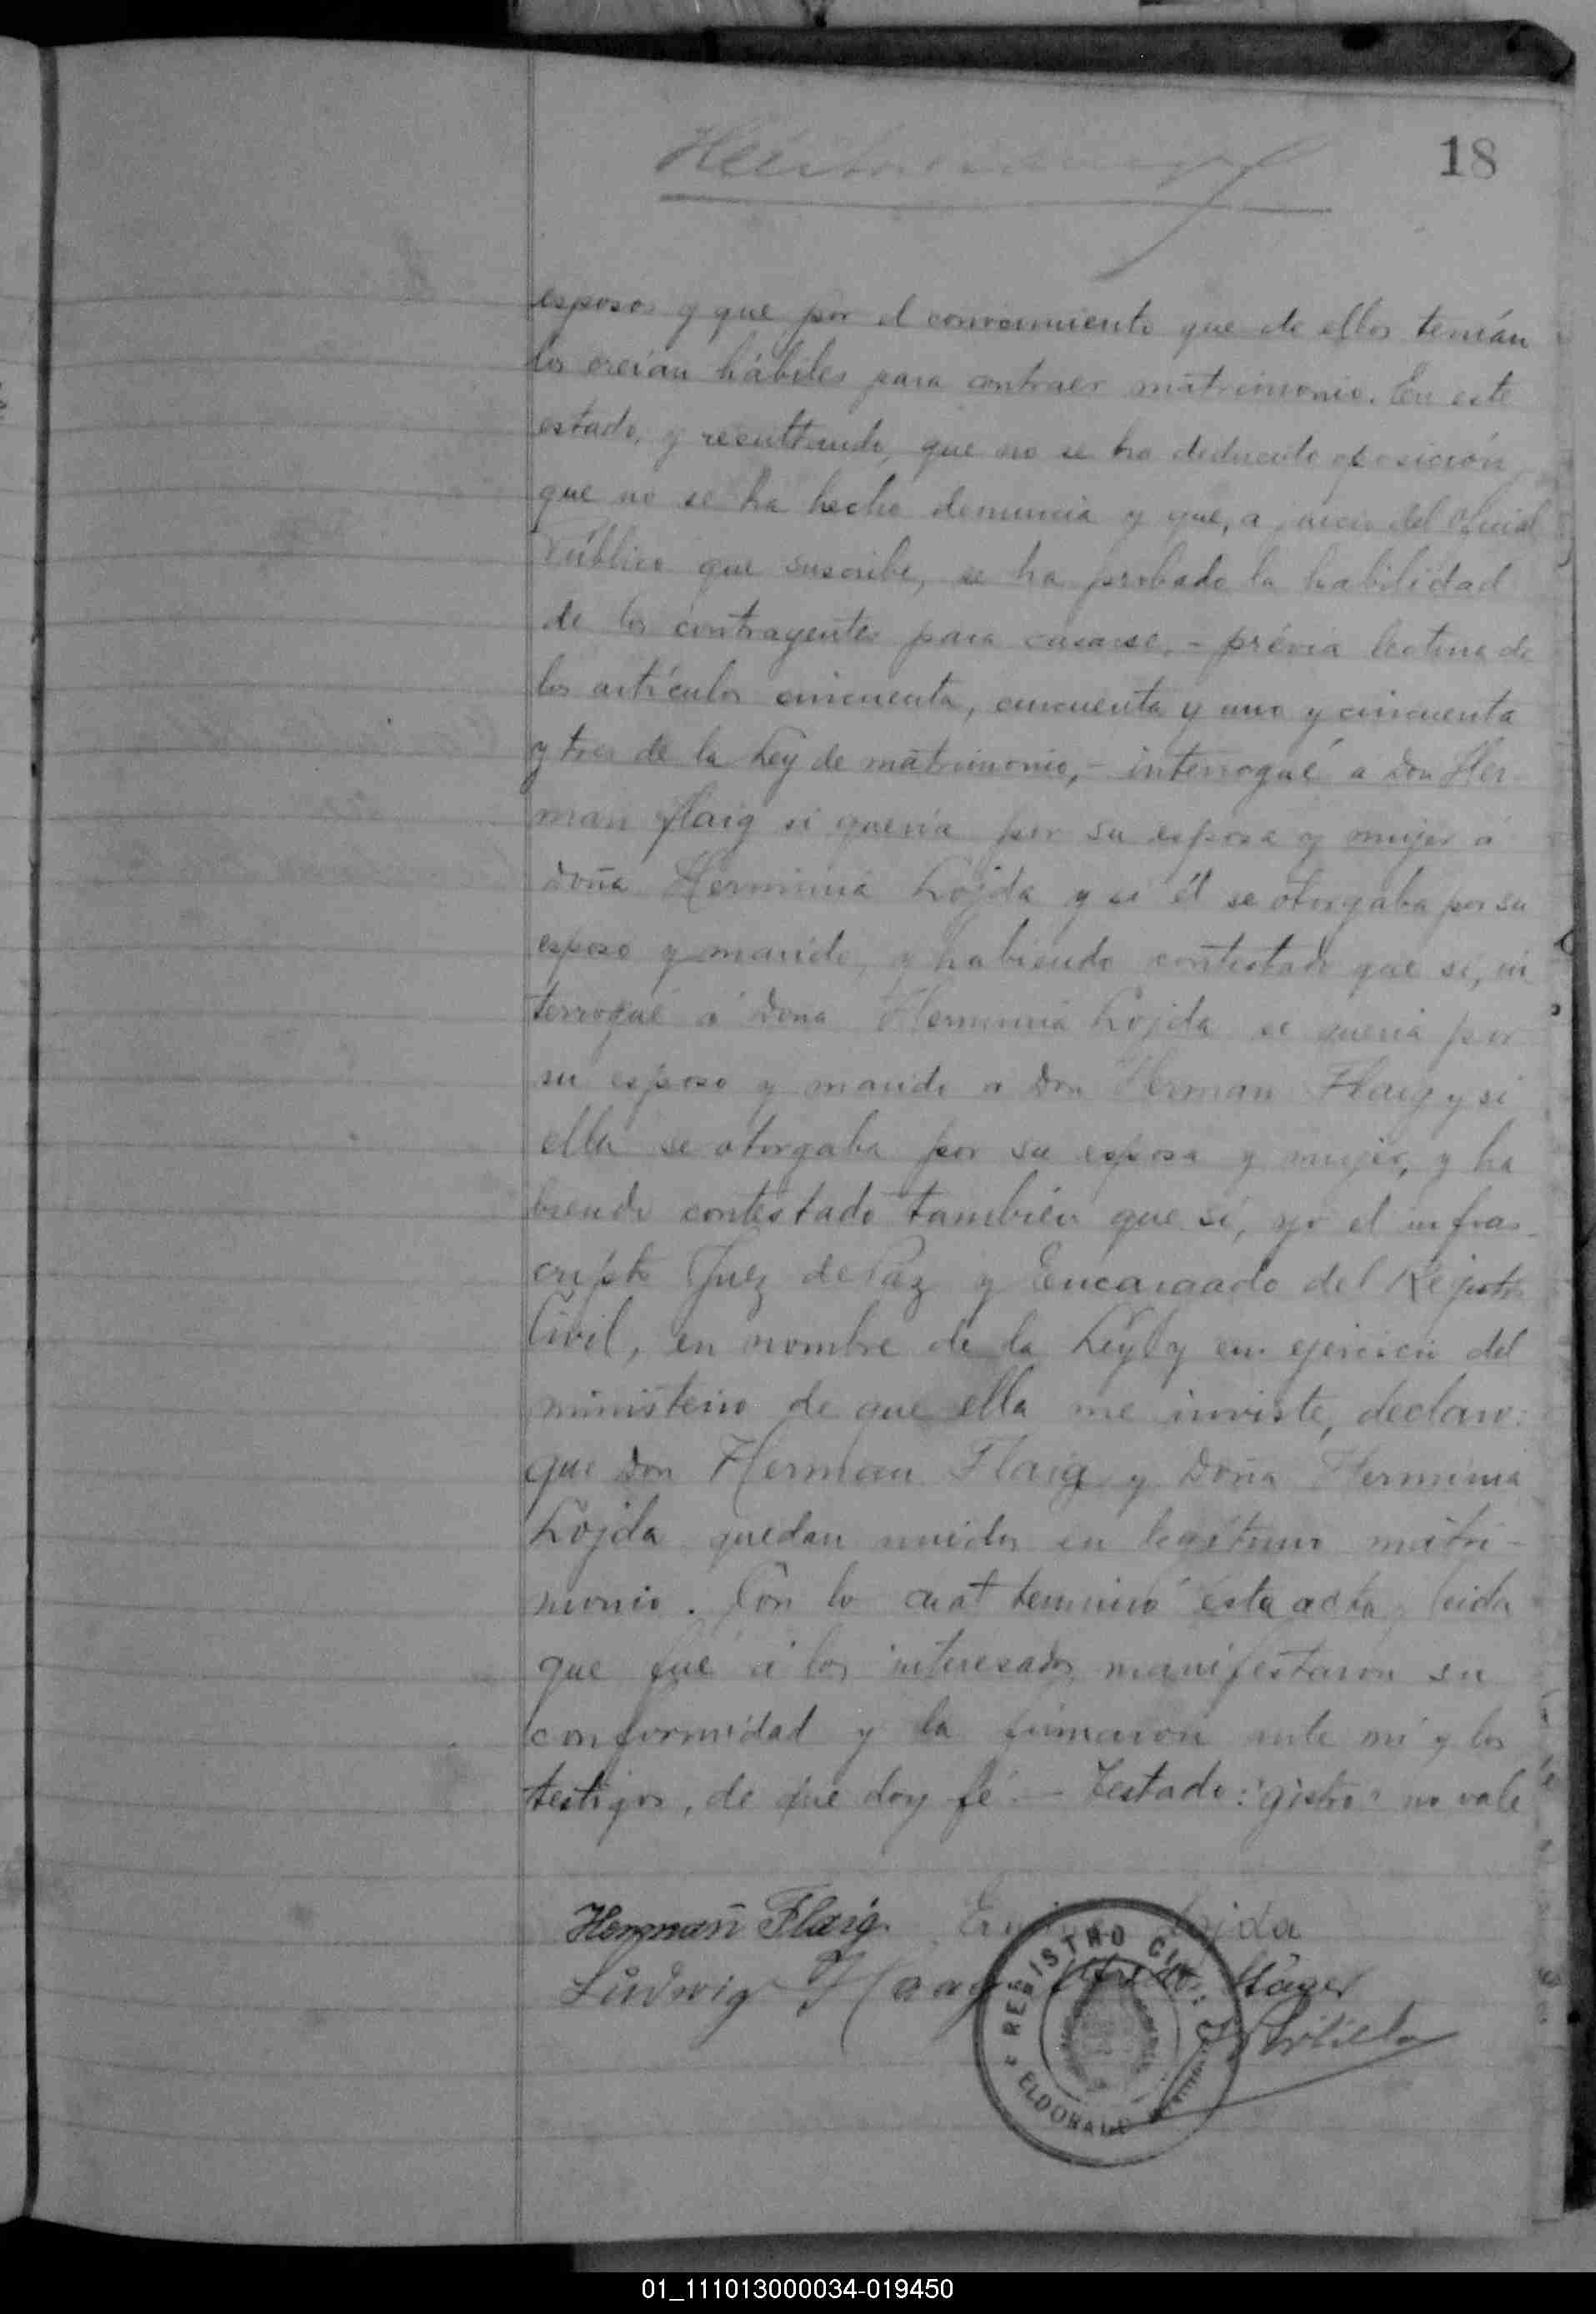 18
esposos y que por el conocimiento que de ellos tenían
los creían hábiles para contraer matrimonio. En este
estado, y resultando, que no se ha deducido oposición,
que no se ha hecho denuncia y que, a juicio del Oficial
Público que suscribe, se ha probado la habilidad
de los contrayentes para casarse, - prévia lectura de
los artículos cincuenta, cincuenta y uno y cincuenta
y tres de la Ley de matrimonio, - interrogué a Don Her
man Flaig si quería por su esposa y mujer á
Doña Herminia Lojda y si él se otorgaba por su
esposo y marido, y habiendo contestado que sí, in
terrogué á Doña Herminia Lojda si quería por
su esposo y marido a Don Herman Flaig y si
ella se otorgaba por su esposa y mujer, y ha
biendo contestado también que sí, yo el infras-
cripto Juez de Paz y Encargado del Registro
Civil, en nombre de la Ley y en ejercicio del
ministerio de que ella me inviste, declaro:
que Don Herman Flaig y Doña Herminia
Lojda quedan unidos en legítimo matri-
monio. Con lo cual terminó esta acta, leida
que fué á los interesados, manifestaron su
conformidad y la firmaron ante mí y los
testigos, de que doy fé. - Testado: "gistro" no vale
Hermann Flaig Lojda
Ludwig Haag
REGISTRO CIVIL
ELDORADO
01_111013000034-019450